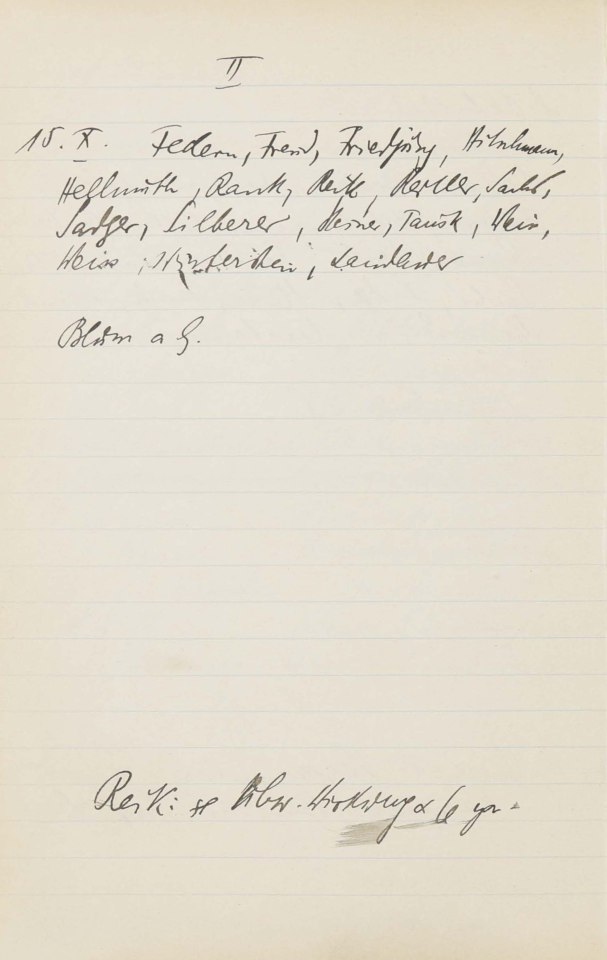 II
15. X. Federn, Freud, Friedjung, Hitschmann,
Hellmuth, Rank, Reik, Reitler, Sachs,
Sadger, Silberer, Steiner, Tausk, Weiss,
Weiss, Winterstein, Landauer
Blum a G.
Reik: Wirkung